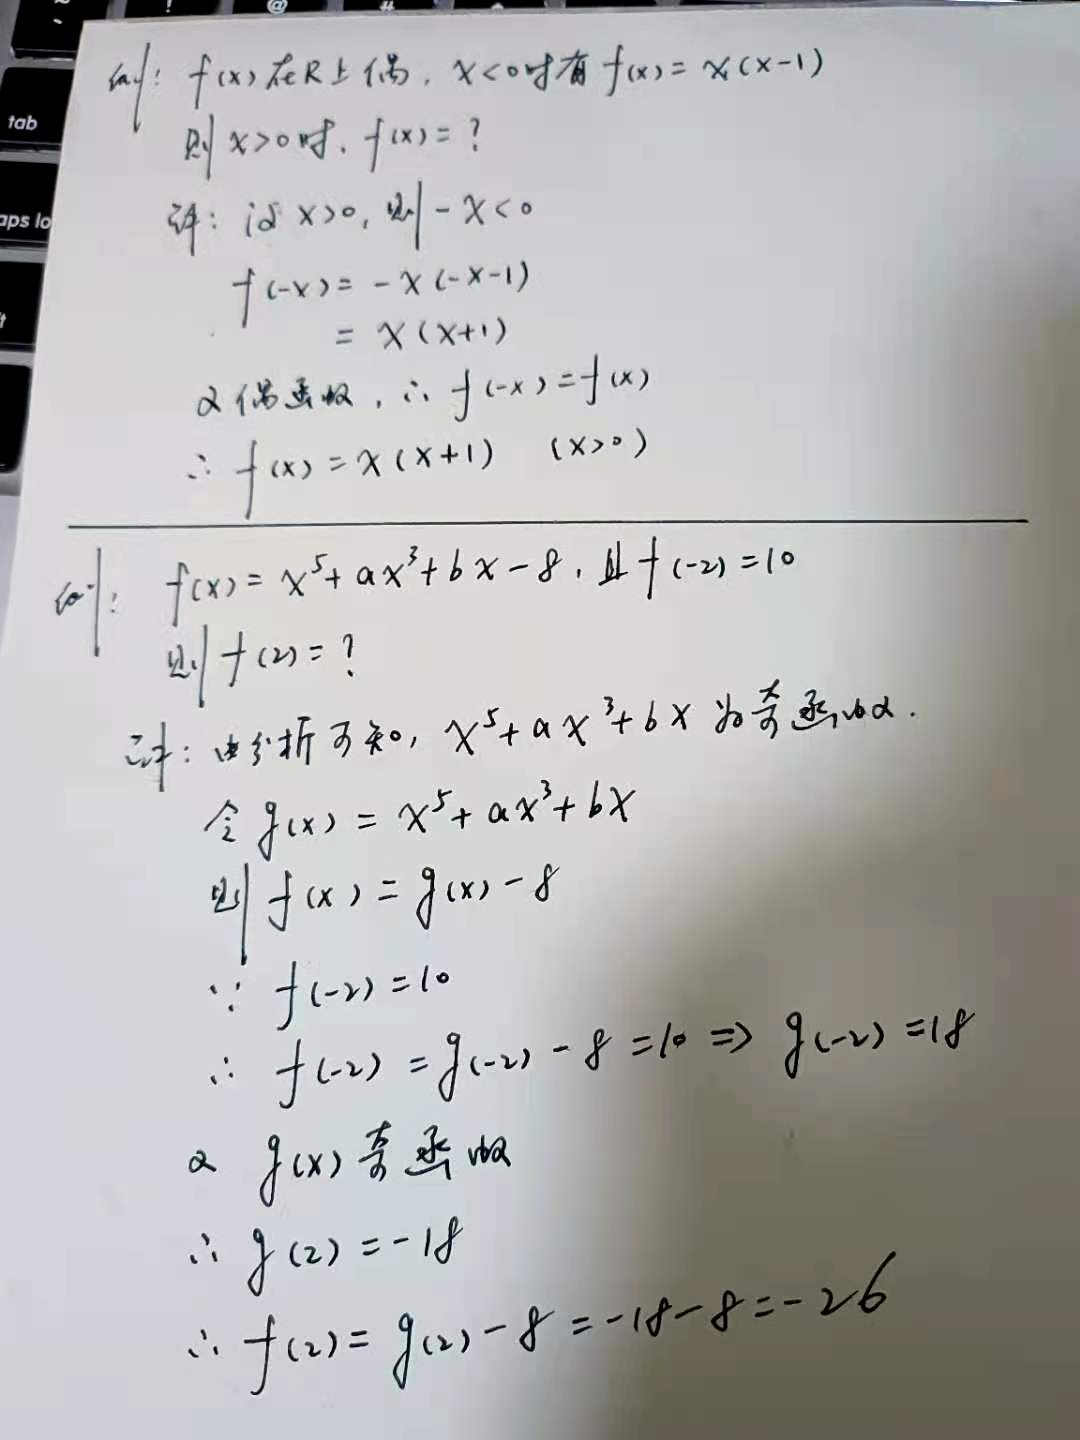 tab
aps lo
! @ #
例: f(x)在R上偶, x<0时有 f(x)= x(x-1)
则 x>0时, f(x)= ?
解: 设 x>0, 则 -x<0
f(-x)= -x(-x-1)
= x(x+1)
又偶函数, ∴ f(-x)=f(x)
∴ f(x)=x(x+1) (x>0)
例: f(x)= x⁵+ax³+bx-8, 且 f(-2)=10
则 f(2)= ?
解: 由分析可知, x⁵+ax³+bx 为奇函数.
令 g(x)= x⁵+ax³+bx
则 f(x)=g(x)-8
∵ f(-2)=10
∴ f(-2)=g(-2)-8=10 ⇒ g(-2)=18
又 g(x)奇函数
∴ g(2)=-18
∴ f(2)= g(2)-8=-18-8=-26